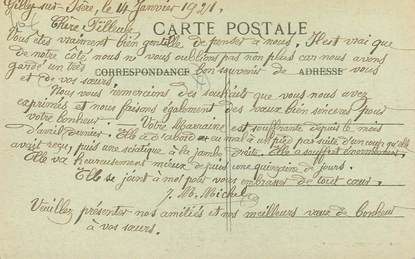 Gilly-sur-Isère, le 14 Janvier 1921.
CARTE POSTALE
Chère Filleule,
Vous êtes vraiment bien gentille de penser à nous. Il est vrai que
de notre côté, nous ne vous oublions pas non plus car nous avons
gardé un très bon souvenir de vous
CORRESPONDANCE ADRESSE
et de vos sœurs.
Nous vous remercions des souhaits que vous nous avez
exprimés et nous faisons également des vœux bien sincères pour
votre bonheur. Votre Marraine est souffrante depuis le mois
d'avril dernier. Elle a d'abord eu mal à un pied par suite d'un coup qu'elle
avait reçu, puis une sciatique à la jambe droite. Elle a souffert
Elle va heureusement mieux depuis une quinzaine de jours.
Elle se joint à moi pour vous embrasser de tout cœur.
J. M. Michel
Veuillez présenter nos amitiés et nos meilleurs vœux de bonheur
à vos sœurs.